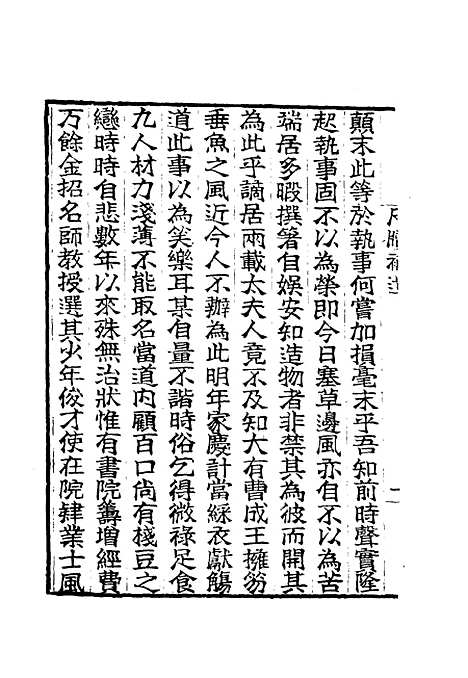 顛末此等於執事何嘗加損毫末乎吾知前時聲實隆
起執事固不以為榮即今日塞草邊風亦自不以為苦
端居多暇撰箸自娛安知造物者非禁其為彼而開其
為此乎謫居兩載太夫人竟不及知大有曹成王擁笏
垂魚之風近今人不辦為此明年家慶計當綵衣獻觴
道此事以為笑樂耳某自量不諧時俗乞得微祿足食
九人材力淺薄不能取名當道內顧百口尙有棧豆之
戀時時自悲數年以來殊無治狀惟有書院籌增經費
万餘金招名師教授選其少年俊才使在院肄業士風